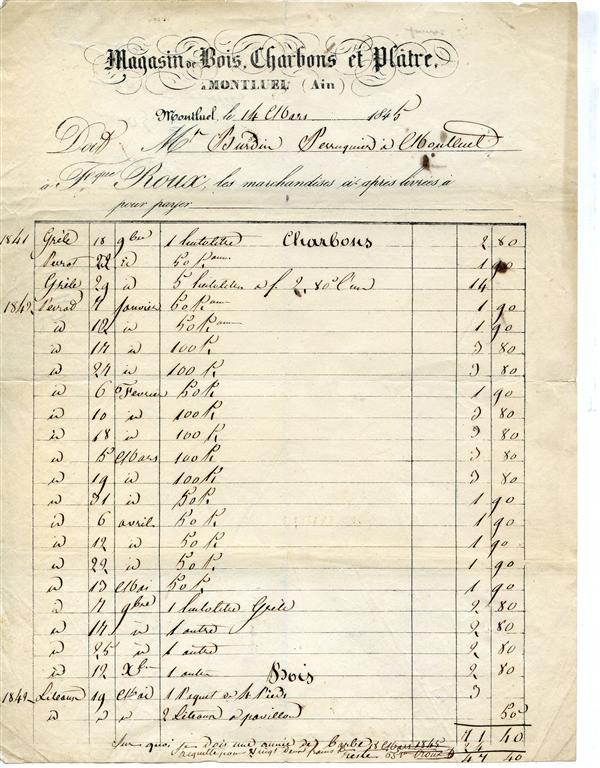 Magasin de Bois, Charbons et Plâtre,
à MONTLUEL (Ain)
Montluel, le 14 Mars 1845
Doit Mr Burdin Perruquier à Montluel
à Fque Roux, les marchandises ci-après livrées, à
pour payer
1841 Grêle 18 9bre 1 hectolitre Charbons 2 80
Perrot 22 id 50 K. 1 90
Grêle 29 id 5 hectolitres à f 2,80c l'un 14
1842 Perrot 7 Janvier 50 K. 1 90
id 12 id 50 K. 1 90
id 14 id 100 K. 3 80
id 24 id 100 K. 3 80
id 6 Fevrier 50 K. 1 90
id 10 id 100 K. 3 80
id 18 id 100 K. 3 80
id 5 Mars 100 K. 3 80
id 19 id 100 K. 3 80
id 31 id 50 K. 1 90
id 6 avril 50 K. 1 90
id 12 id 50 K. 1 90
id 22 id 50 K. 1 90
id 13 Mai 50 K. 1 90
id 7 9bre 1 hectolitre Grêle 2 80
id 14 id 1 autre 2 80
id 25 id 1 autre 2 80
id 12 Xbre 1 autre 2 80
Bois
19 Mai 1 Paquet de 4 Pieds 3
id " " 2 Liteaux à pavillon 50
71 40
Sur quoi je dois une année de barbe 8 Mars 1845 24
vingt deux francs reste Roux 47 40